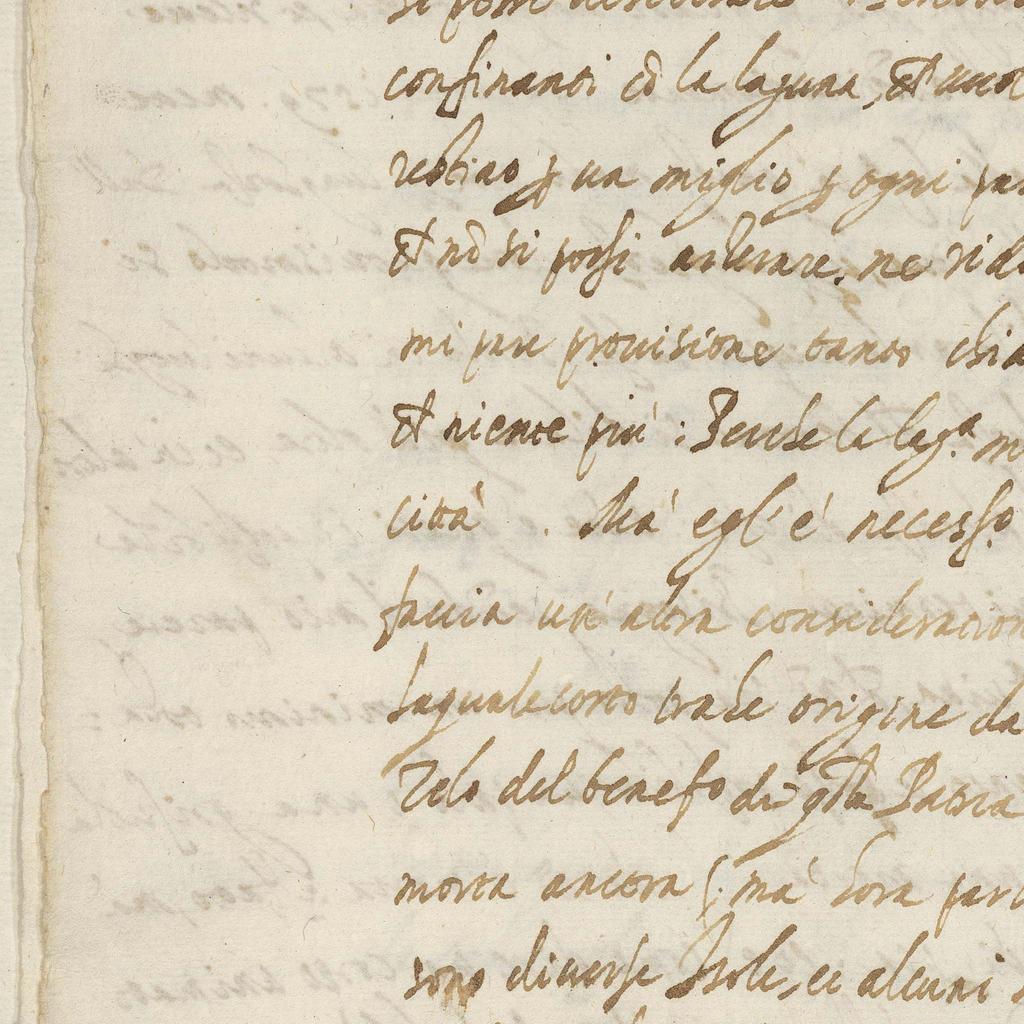 si possi
confinanti cō la laguna, et
restino ꝑ un miglio ꝑ ogni
et nō si possi alterare, ne
mi pare provisione tanto
et niente più: Perche le lag.ᵉ
città. Mà egl'è necess.º
faccia un'altra consideration
laquale certo trahe origine da
Zelo del benef.º di q̄sta Patria
morta ancora (: mà hora
sono diverse Isole, et alcuni